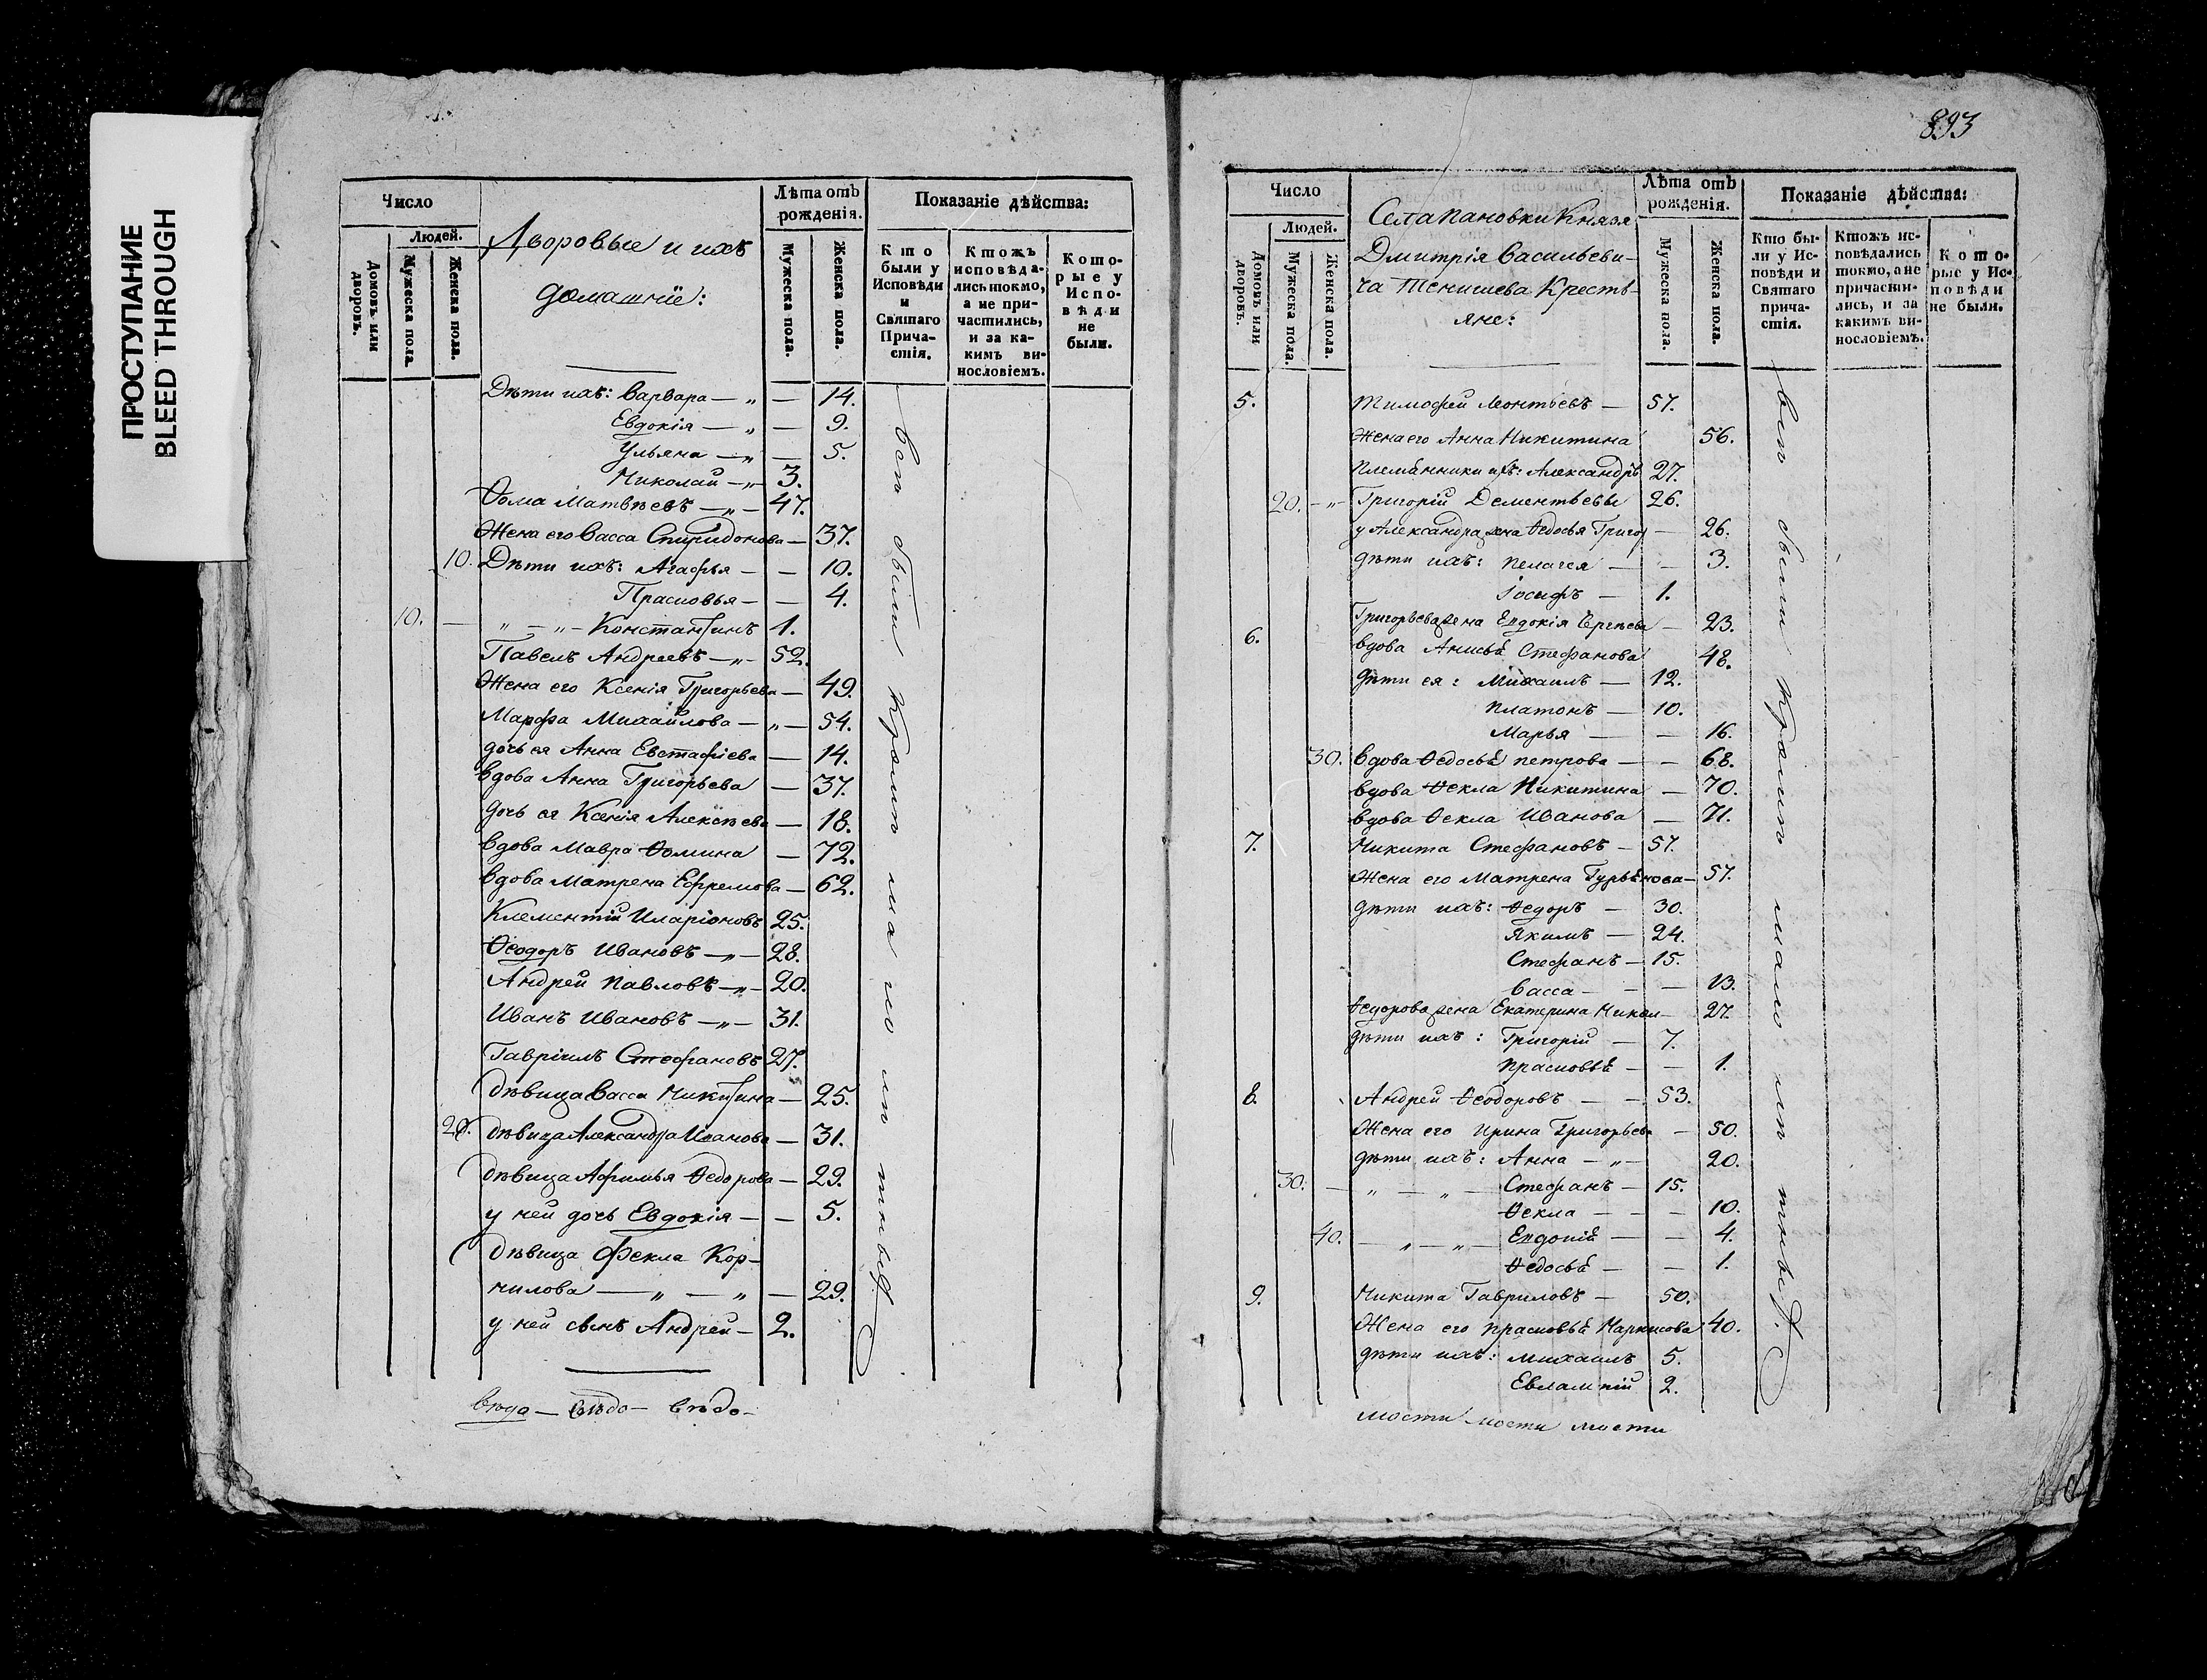 ПРОСТУПАНИЕ
BLEED THROUGH
Число
Людей.
Домовъ или дворовъ.
Мужеска пола.
Женска пола.
Дворовые и ихъ
домашніе:
Лѣта отъ рожденія.
Мужеска пола.
Женска пола.
Показаніе дѣйства:
Кто были у Исповѣди и Святаго Причастія.
Ктожъ исповѣдались токмо, а не причастились, и за какимъ винословіемъ.
Которые у Исповѣди не были.
Дѣти ихъ: Варвара — „ — 14.
Евдокія — „ — 9.
Ульяна — „ — 5.
Николай — „ — 3.
Ѳома Матвѣевъ — „ — 47.
Жена его Васса Спиридонова — 37.
10. Дѣти ихъ: Агафья — — 10.
Прасковья — — 4.
10. — „ — „ — Константинъ 1.
Павелъ Андреевъ — „ — 52.
Жена его Ксенія Григорьева — 49.
Марфа Михайлова — „ — 54.
дочь ея Анна Евстафіева — 14.
вдова Анна Григорьева — 37.
дочь ея Ксенія Алексѣева — 18.
вдова Мавра Ѳомина — 72.
вдова Матрена Ефремова — 62.
Клементій Иларіоновъ 25.
Ѳеодоръ Ивановъ — „ — 28.
Андрей Павловъ — „ — 20.
Иванъ Ивановъ — „ — 31.
Гавріилъ Стефановъ 27.
дѣвица Васса Никитина — 25.
20. дѣвица Александра Иванова — 31.
дѣвица Афимья Ѳедорова — 29.
у ней дочь Евдокія — — 5.
дѣвица Фекла Кор-
нилова — „ — „ — 29.
у ней сынъ Андрей — 2.
всѣ были кромѣ малолѣтныхъ.
вѣдо — вѣдо — вѣдо —
893
Число
Людей.
Домовъ или дворовъ.
Мужеска пола.
Женска пола.
Села Пановки Князя
Дмитрія Васильеви-
ча Тенишева Кресть-
яне:
Лѣта отъ рожденія.
Мужеска пола.
Женска пола.
Показаніе дѣйства:
Кто были у Исповѣди и Святаго причастія.
Ктожъ исповѣдались токмо, а не причастились, и за какимъ винословіемъ.
Которые у Исповѣди не были.
5. Тимофей Леонтьевъ — 57.
Жена его Анна Никитина 56.
племянники ихъ: Александръ 27.
20. — „ — Григорій Дементьевы 26.
у Александра жена Ѳедосья Григор — 26.
дѣти ихъ: Пелагея — — 3.
Іосифъ — 1.
Григорьева жена Евдокія Сергѣева — 23.
6. вдова Анисья Стефанова 48.
дѣти ея: Михаилъ — 12.
Платонъ — 10.
Марья — — 16.
30. вдова Ѳедосья Петрова — — 68.
вдова Ѳекла Никитина — 70.
вдова Ѳекла Иванова — 71.
7. Никита Стефановъ — 57.
Жена его Матрена Гурьянова — 57.
дѣти ихъ: Ѳедоръ — 30.
Якимъ — 24.
Стефанъ — 15.
Васса — — — 13.
Ѳедорова жена Екатерина Никол — 27.
дѣти ихъ: Григорій — 7.
Прасковья — — 1.
8. Андрей Ѳеодоровъ — — 53.
Жена его Ирина Григорьева — 50.
дѣти ихъ: Анна — „ — 20.
30. — „ — „ — Стефанъ — 15.
Ѳекла — — — 10.
40. — „ — „ — Евдокія — — 4.
Ѳедосья — — 1.
9. Никита Гавриловъ — 50.
Жена его Прасковья Маркисова 40.
дѣти ихъ: Михаилъ 5.
Евлампій 2.
всѣ были кромѣ малолѣтныхъ.
мости мости мости